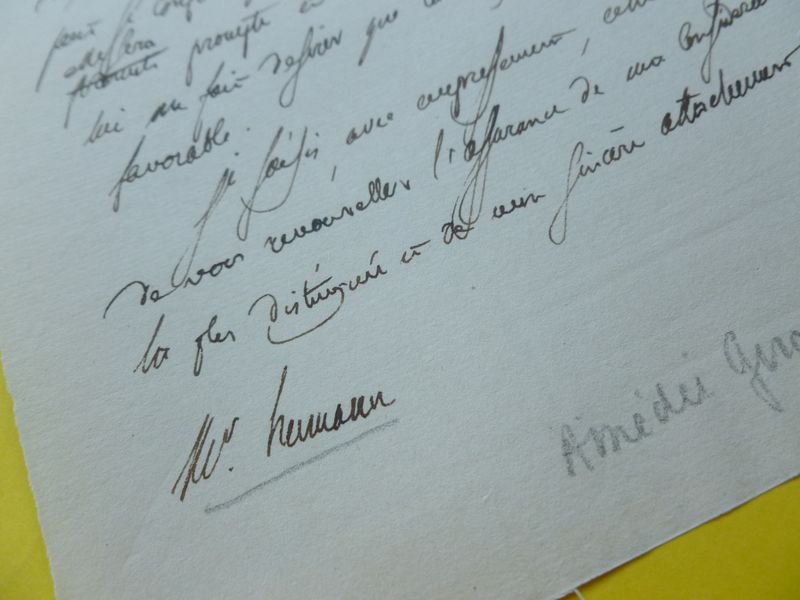 peut
sera
prompte
lui en fait desirer que
favorable.
Je saisis, avec empressement, cette
de vous renouveller l'assurance de ma considera
la plus distinguée et de mon sincère attachement
Mr. hermann
Amédée Giro